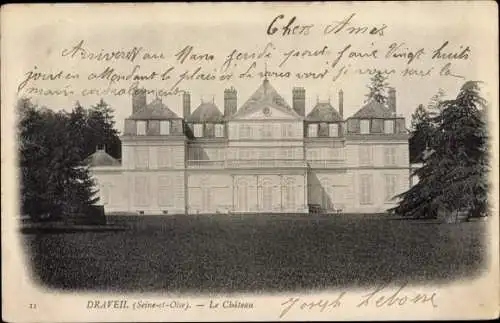 Chers Ames
Arriverer au Mans jeudi pour faire Vingt huit
jours En attendant le plaisir de vous voir je vous serre la
main
21 DRAVEIL (Seine-et-Oise). — Le Château
Joseph Lebosse